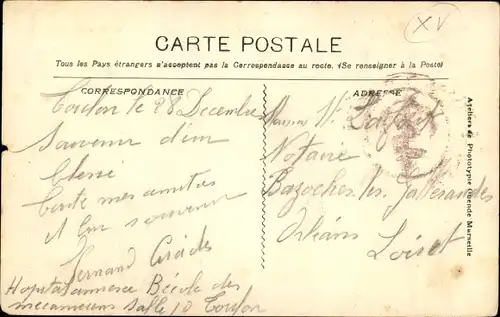 XV
CARTE POSTALE
Tous les Pays étrangers n'acceptent pas la Correspondance au recto. (Se renseigner à la Poste)
CORRESPONDANCE
ADRESSE
Toulon le 28 Decembre
Souvenir d'un
toute mes amitiés
et bon souvenir
Fernand
Hopital annexe B école des
mecaniciens Salle 10 Toulon
Notaire
Bazoches les Gallerandes
Orléans
Loiret
Ateliers de Phototypie Marseille